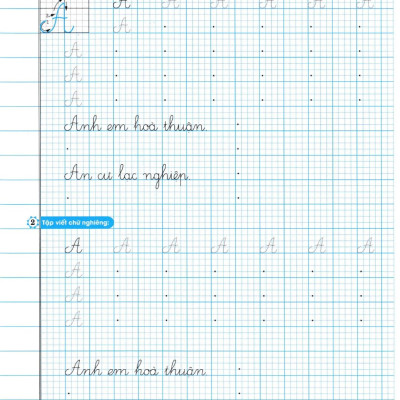 A A A A A A A
A
A
A
A
Anh em hoà thuận.
An cư lạc nghiệp.
2 Tập viết chữ nghiêng:
A A A A A A A
A
A
A
Anh em hoà thuận.